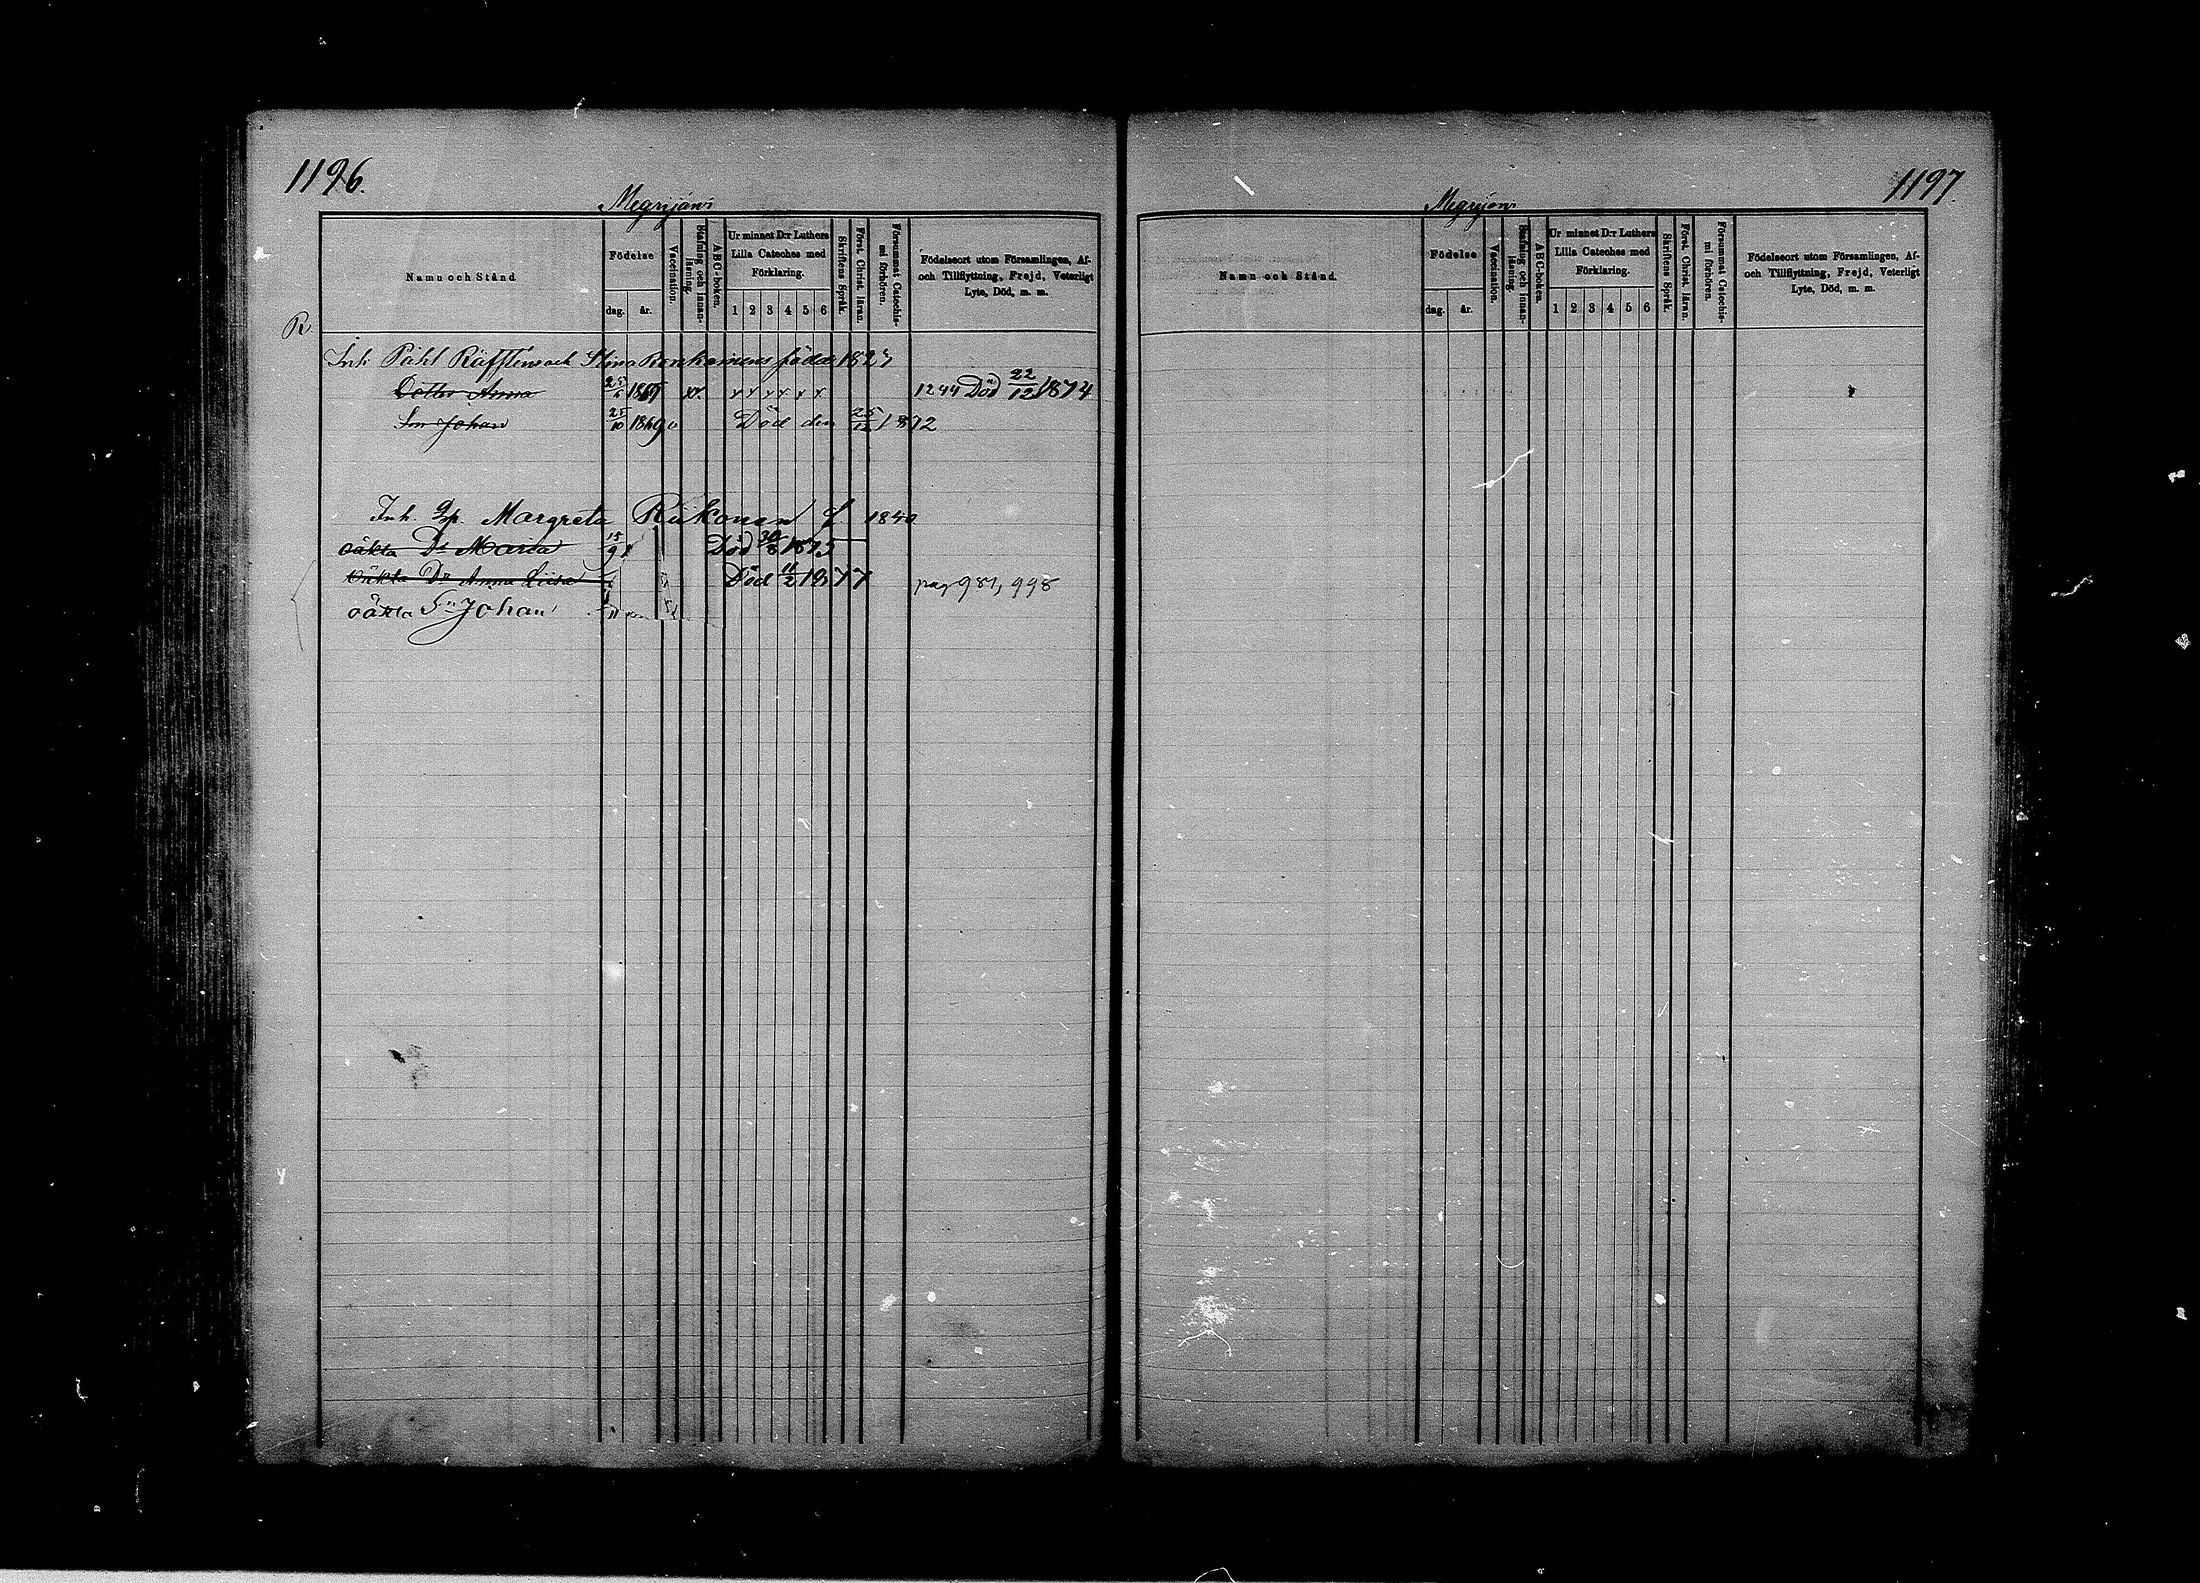 1196.
Megrijärvi
Namn och Stånd
Födelse
dag. år.
Vaccination.
Stafning och innanläsning.
ABC-boken.
Ur minnet D:r Luthers Lilla Cateches med Förklaring.
1 2 3 4 5 6
Skriftens Språk.
Först. Christ. läran.
Försummat Catechismi förhören.
Födelseort utom Församlingen, Af- och Tillflyttning, Frejd, Veterligt Lyte, Död, m. m.
R.
Inh Påhl Räfftens och Stina född 1827
Dotter Anna 25/6 1865 xx. x x x x x x 1244 Död 22/12 1874
Son Johan 25/10 1869 Död den 25/12 1872
Inh. Margreta Riikonen f. 1840
oäkta Dr Maria 15/9 Död 30/8 1875
oäkta Dr Anna Liisa Död 11/2 1877 pag 981, 998
oäkta Sn Johan 11
1197.
Megrijärvi
Namn och Stånd
Födelse
dag. år.
Vaccination.
Stafning och innanläsning.
ABC-boken.
Ur minnet D:r Luthers Lilla Cateches med Förklaring.
1 2 3 4 5 6
Skriftens Språk.
Först. Christ. läran.
Försummat Catechismi förhören.
Födelseort utom Församlingen, Af- och Tillflyttning, Frejd, Veterligt Lyte, Död, m. m.